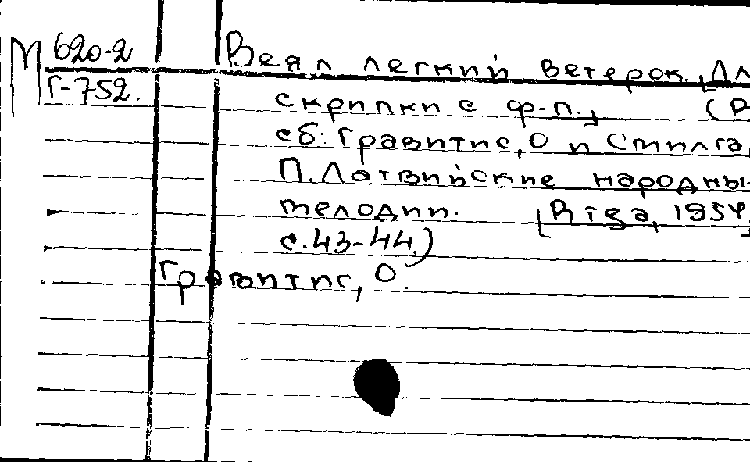 М 620-2
Г-752.
Веял легкий ветерок. [Дл
скрипки с ф-п.,
сб: Гравитис, О и Стилга,
П. Латвийские народны
мелодии. [Riga, 1954,
с.43-44.)
Гравитис, О.